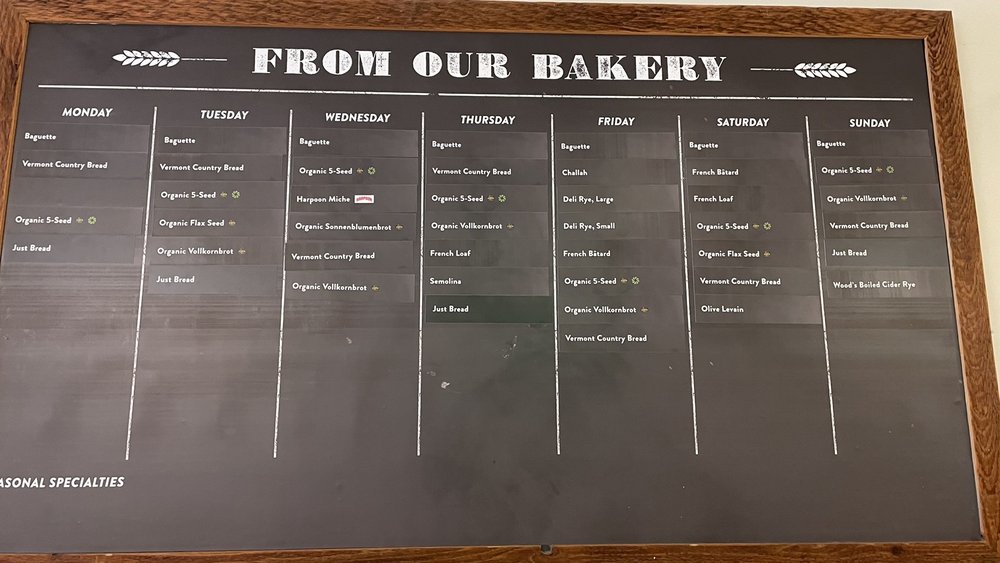 FROM OUR BAKERY
MONDAY
Baguette
Vermont Country Bread
Organic 5-Seed
Just Bread
TUESDAY
Baguette
Vermont Country Bread
Organic 5-Seed
Organic Flax Seed
Organic Vollkornbrot
Just Bread
WEDNESDAY
Baguette
Organic 5-Seed
Harpoon Miche HARPOON
Organic Sonnenblumenbrot
Vermont Country Bread
Organic Vollkornbrot
THURSDAY
Baguette
Vermont Country Bread
Organic 5-Seed
Organic Vollkornbrot
French Loaf
Semolina
Just Bread
FRIDAY
Baguette
Challah
Deli Rye, Large
Deli Rye, Small
French Bâtard
Organic 5-Seed
Organic Vollkornbrot
Vermont Country Bread
SATURDAY
Baguette
French Bâtard
French Loaf
Organic 5-Seed
Organic Flax Seed
Vermont Country Bread
Olive Levain
SUNDAY
Baguette
Organic 5-Seed
Organic Vollkornbrot
Vermont Country Bread
Just Bread
Wood's Boiled Cider Rye
ASONAL SPECIALTIES